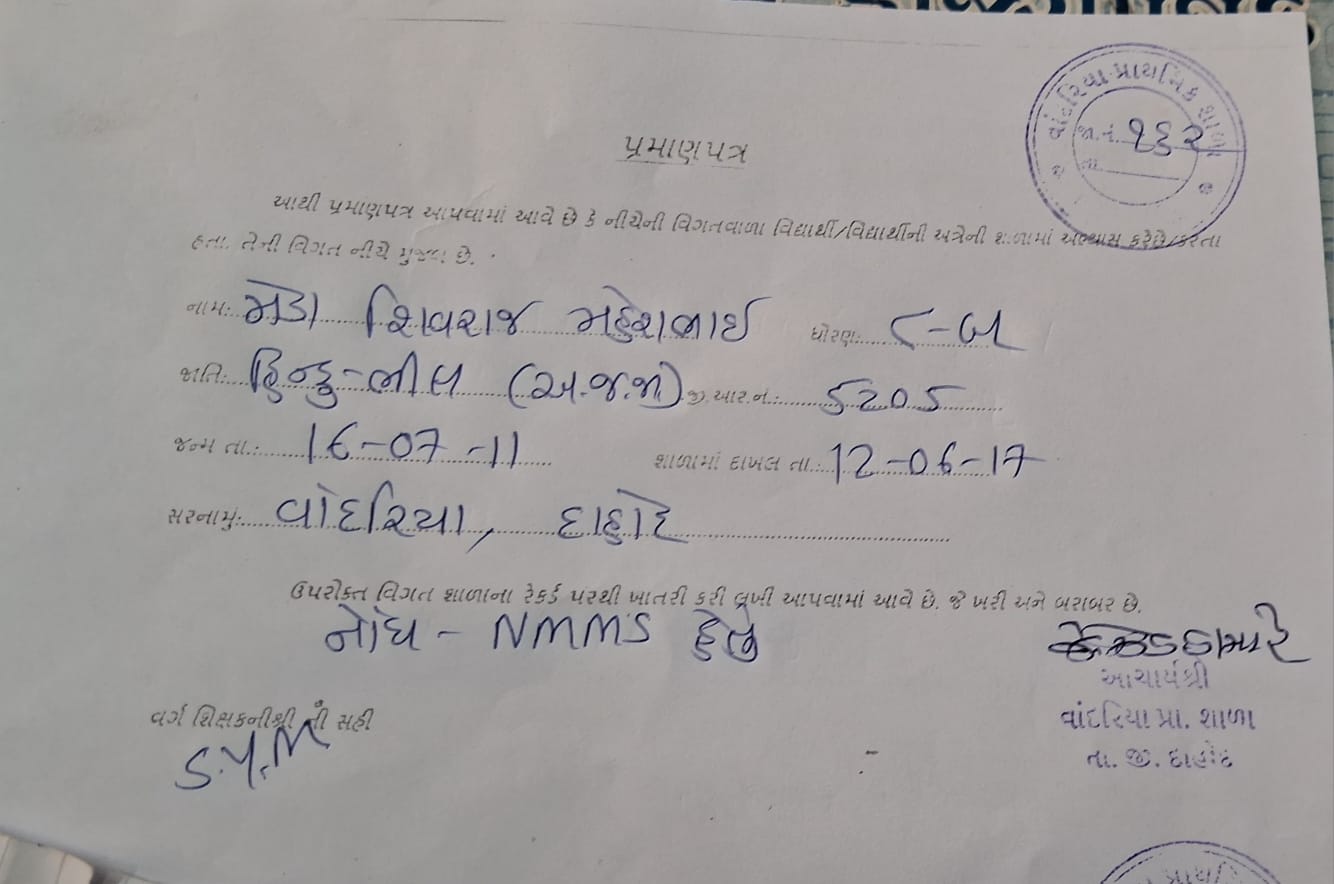 વાંદરિયા પ્રાથમિક શાળા
જા.નં. ૧૬૨
તા.
પ્રમાણપત્ર
આથી પ્રમાણપત્ર આપવામાં આવે છે કે નીચેની વિગતવાળા વિદ્યાર્થી/વિદ્યાર્થીની અત્રેની શાળામાં અભ્યાસ કરેછે/કરતા
હતા. તેની વિગત નીચે મુજબ છે.
નામ: મેડા શિવરાજ મહેશભાઇ ધોરણ: ૮-બ
જાતિ: હિન્દુ-ભીલ (અ.જ.જા) જી.આર.નં.: 5205
જન્મ તા.: 16-07-11 શાળામાં દાખલ તા.: 12-06-17
સરનામું: વાંદરિયા, દાહોદ
ઉપરોક્ત વિગત શાળાના રેકર્ડ પરથી ખાતરી કરી લખી આપવામાં આવે છે. જે ખરી અને બરાબર છે.
નોંધ - NMMS હેતુ
આચાર્યશ્રી
વાંદરિયા પ્રા. શાળા
તા. જી. દાહોદ
વર્ગ શિક્ષકનીશ્રી ની સહી
S.Y.M